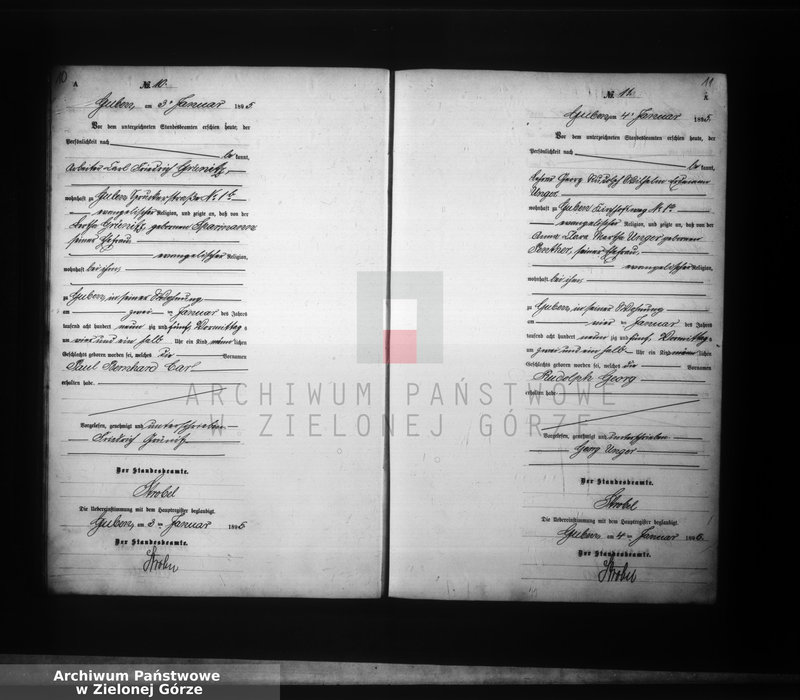 10
A
№ 10.
Guben, am 3. Januar 1895
Vor dem unterzeichneten Standesbeamten erschien heute, der
Persönlichkeit nach
be kannt,
Arbeiter Carl Friedrich
wohnhaft zu Guben № 1
evangelischer Religion, und zeigte an, daß von der
Bertha geborenen
seiner Ehefrau
evangelischer Religion,
wohnhaft bei ihm,
zu Guben, in seiner Wohnung
am zwei ten Januar des Jahres
tausend acht hundert neun zig und fünf, Vormittag s
um vier und ein halb Uhr ein Kind männ lichen
Geschlechts geboren worden sei, welches die Vornamen
Paul Bernhard Carl
erhalten habe.
Vorgelesen, genehmigt und unterschrieben
Friedrich
Der Standesbeamte.
Strobel
Die Uebereinstimmung mit dem Hauptregister beglaubigt.
Guben, am 3 ten Januar 1895
Der Standesbeamte.
Strobel
11
A
№ 11.
Guben, am 4. Januar 1895
Vor dem unterzeichneten Standesbeamten erschien heute, der
Persönlichkeit nach
be kannt,
Georg Rudolph Wilhelm Hermann
Unger
wohnhaft zu Guben №
evangelischer Religion, und zeigte an, daß von der
Anna Clara Martha Unger geborenen
seiner Ehefrau,
evangelischer Religion,
wohnhaft bei ihm,
zu Guben, in seiner Wohnung
am vier ten Januar des Jahres
tausend acht hundert neun zig und fünf, Vormittag s
um zwei und ein halb Uhr ein Kind männ lichen
Geschlechts geboren worden sei, welches die Vornamen
Rudolph Georg
erhalten habe.
Vorgelesen, genehmigt und unterschrieben
Georg Unger
Der Standesbeamte.
Strobel
Die Uebereinstimmung mit dem Hauptregister beglaubigt.
Guben, am 4 ten Januar 1895.
Der Standesbeamte.
Strobel
ARCHIWUM PAŃSTWOWE
W ZIELONEJ GÓRZE
Archiwum Państwowe
w Zielonej Górze